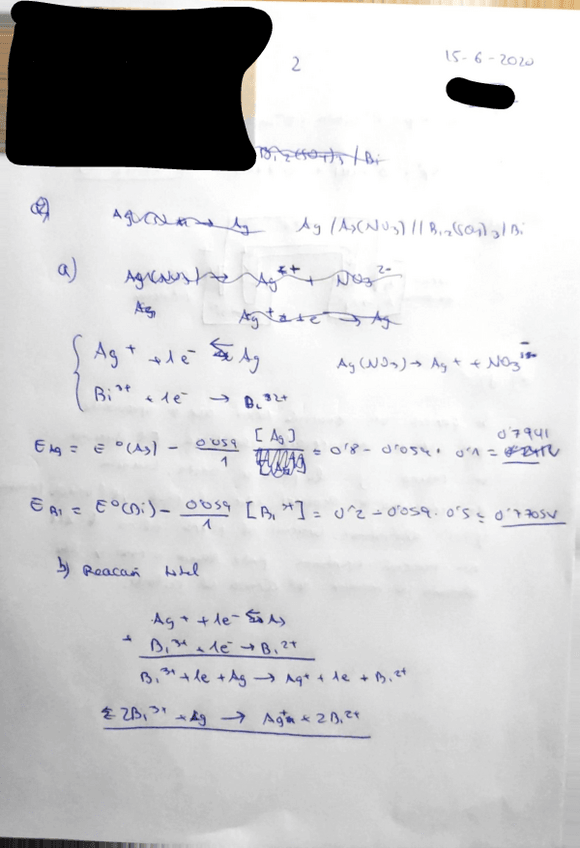 2
15-6-2020
Bi2(SO4)3 / Bi
Ag / Ag(NO3) // Bi2(SO4)3 / Bi
a) Ag(NO3) → Ag + NO3 2-
Ag Ag + 1e → Ag
Ag+ + 1e- ⇆ Ag Ag(NO3) → Ag+ + NO3-
Bi3+ + 1e- → Bi2+
EAg = E°(Ag) - 0'059/1 [Ag] = 0'8 - 0'059 · 0'1 = 0'7941
EBi = E°(Bi) - 0'059/1 [Bi3+] = 0'2 - 0'059 · 0'5 = 0'1705V
b) Reacción total
Ag+ + 1e- ⇆ Ag
+ Bi3+ + 1e- → Bi2+
Bi3+ + 1e + Ag → Ag+ + 1e + Bi2+
2Bi3+ + Ag → Ag+ + 2Bi2+